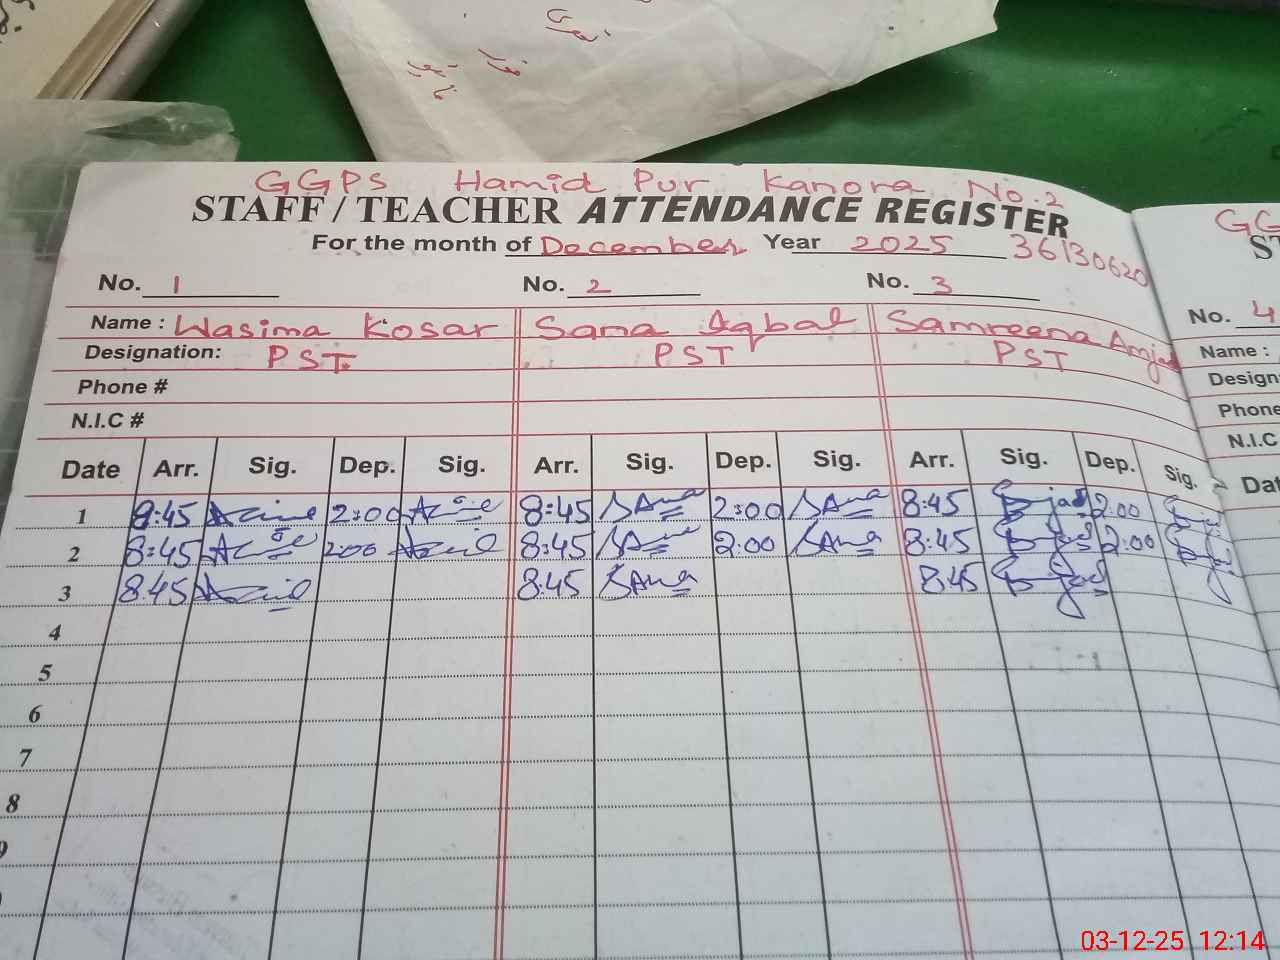 GGPS Hamid Pur Kanora No.2
STAFF / TEACHER ATTENDANCE REGISTER
For the month of December Year 2025 36130620
No. 1 No. 2 No. 3
Name : Wasima Kosar Sana Iqbal Samreena Amjad
Designation: PST PST PST
Phone #
N.I.C #
Date Arr. Sig. Dep. Sig. Arr. Sig. Dep. Sig. Arr. Sig. Dep. Sig.
1 8:45 2:00 8:45 SAna 2:00 SAna 8:45 2:00
2 8:45 2:00 8:45 SAna 2:00 SAna 8:45 2:00
3 8:45 8:45 SAna 8:45
4
5
6
7
8
9
GG
ST
No. 4
Name :
Design
Phone
N.I.C
Dat
03-12-25 12:14